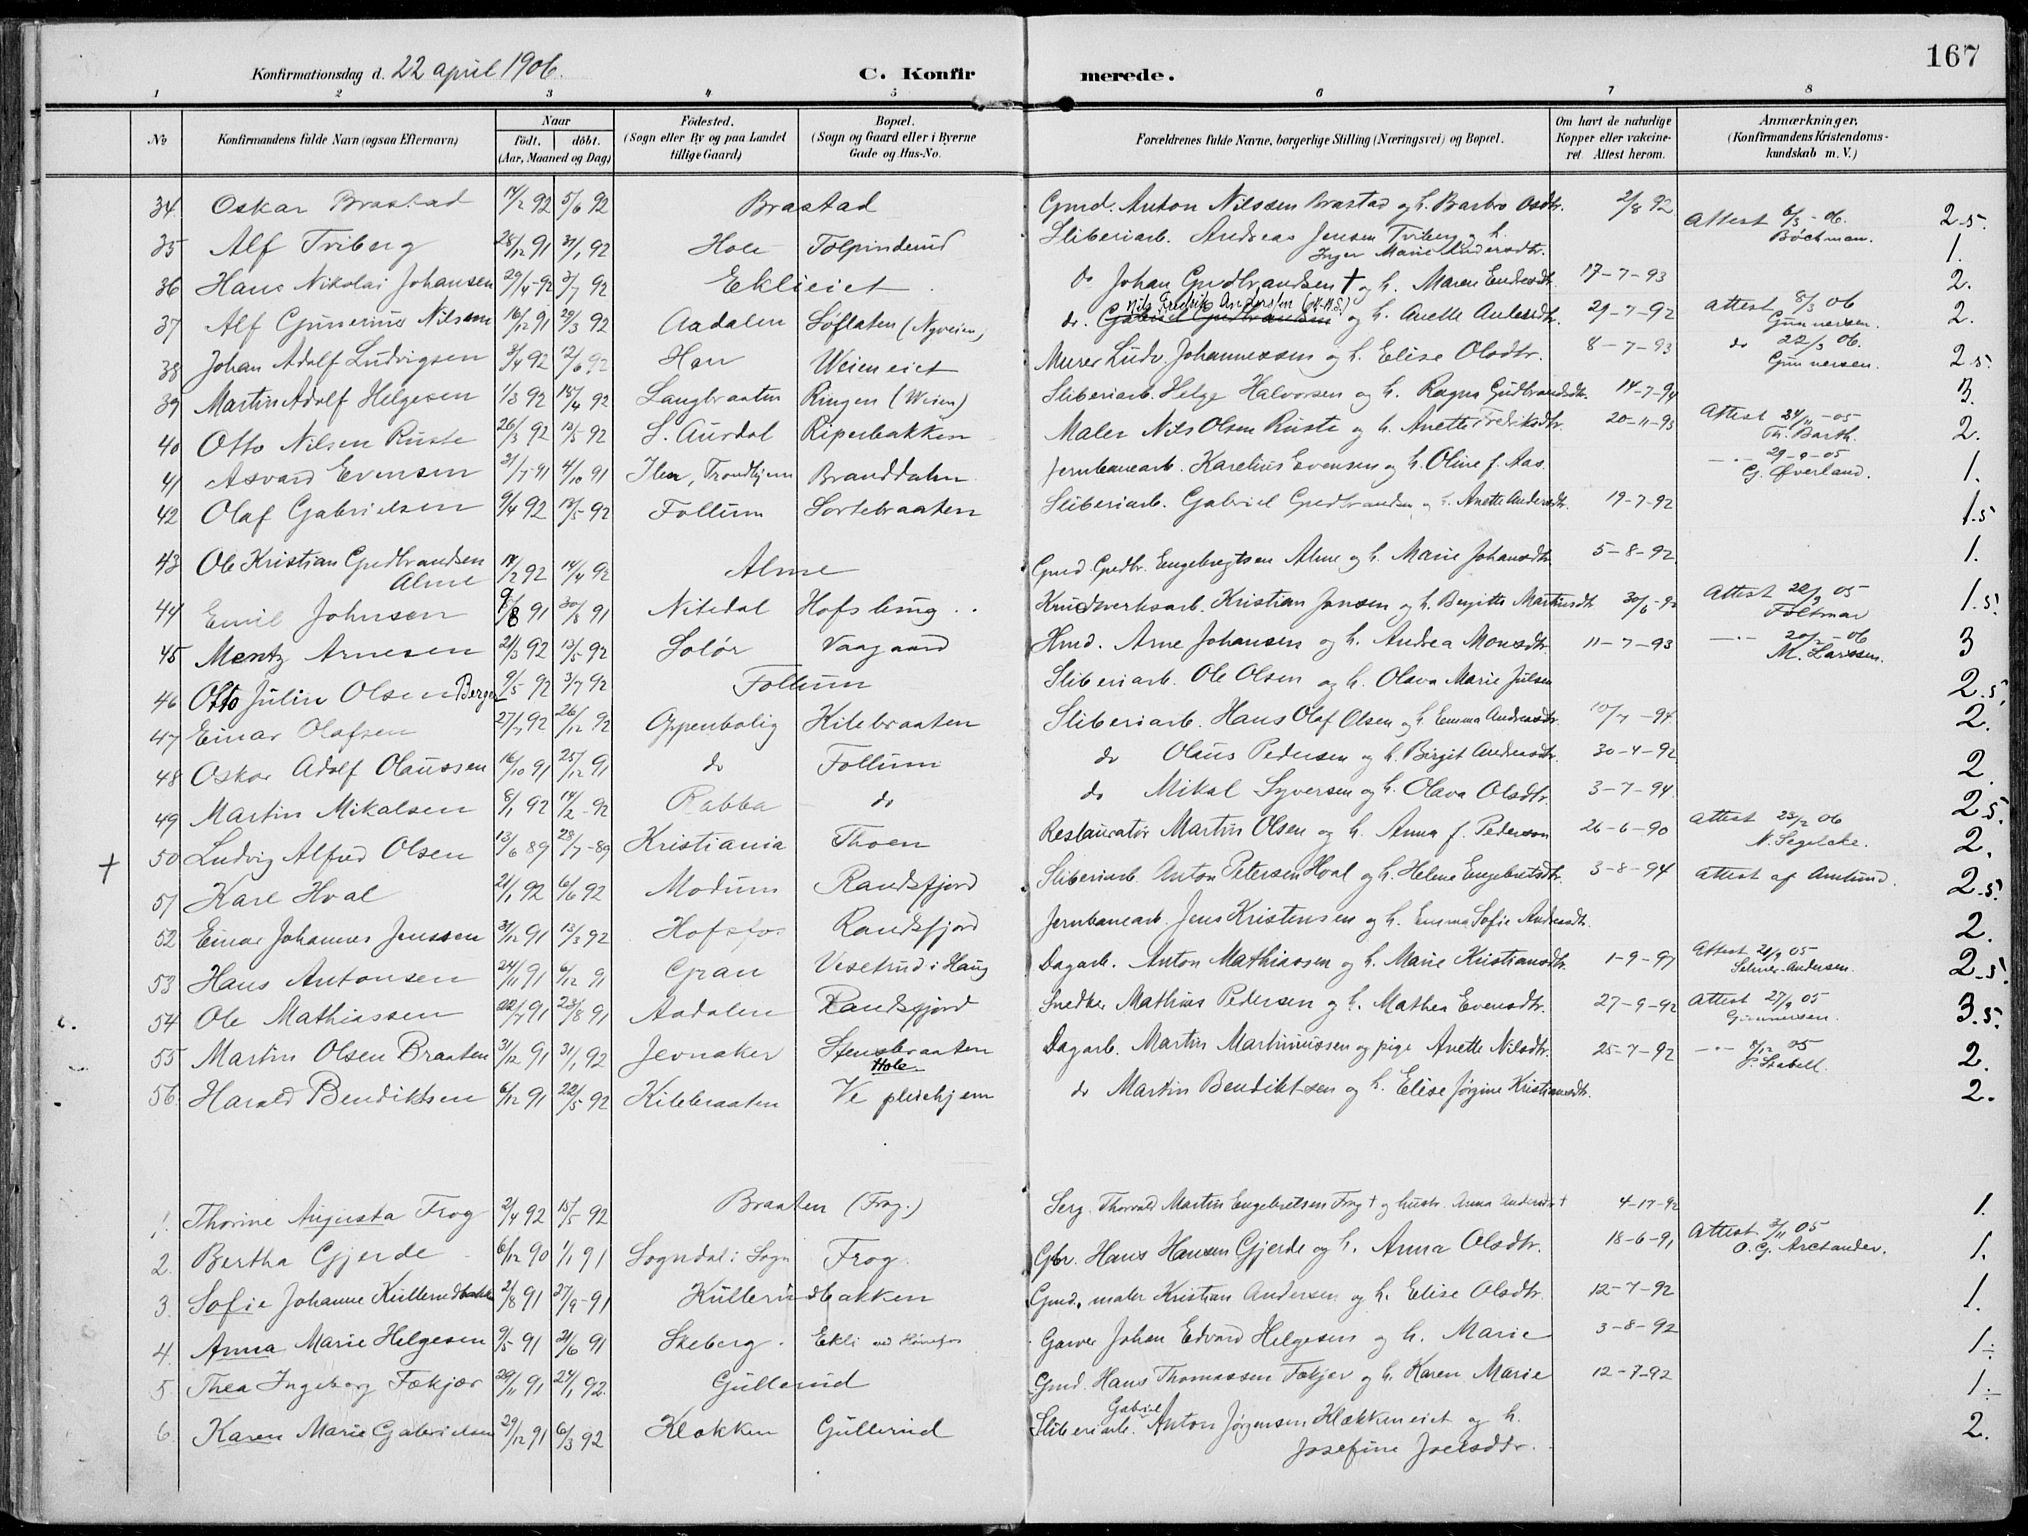 167
Konfirmationsdag d. 22 april 1906.
C. Konfirmerede.
1 2 3 4 5 6 7 8
No
Konfirmandens fulde Navn (ogsaa Efternavn)
Naar
født. døbt.
(Aar, Maaned og Dag)
Fødested.
(Sogn eller By og paa Landet
tillige Gaard)
Bopæl.
(Sogn og Gaard eller i Byerne
Gade og Hus-No.
Forældrenes fulde Navne, borgerlige Stilling (Næringsvei) og Bopæl.
Om havt de naturlige
Kopper eller vakcine-
ret. Attest herom.
Anmærkninger.
(Konfirmandens Kristendoms-
kundskab m. V.)
34 Oskar Brastad 14/2 92 5/6 92 Brastad Gmd. Anton Nilssen Brastad og h. Barbro Osdtr. 2/8 92 2.5.
35 Alf Friberg 28/12 91 31/1 92 Hole Tolpinderud Sliberiarb. Andreas Jensen Friberg og h. Inger Marie Andersdtr. Attest 6/3 - 06. Bøchman. 1.
36 Hans Nikolai Johansen 29/4 - 92 3/7 92 Eklieiet do Johan Gudbrandsen † og h. Maren Endresdtr. 17-7-93 2.
37 Alf Gunerius Nilsen 16/12 91 29/3 92 Aadalen Søflaten (Nyveien) do. Nils Fredrik Andersen og h. Anette Andersdtr. 29-7-92 Attest 8/3 06 Gunnersen. 2.
38 Johan Adolf Ludvigsen 3/4 92 12/6 92 Hen Weieneiet Murer Ludv. Johannessen og h. Elise Olsdtr. 8-7-93 do 22/3 06. Gunnersen. 2.5.
39 Martin Adolf Helgesen 1/3 92 18/4 92 Langbraaten Ringen (Weien) Sliberiarb. Helge Halvorsen og h. Ragna Gudbrandsdtr. 14-7-94 3.
40 Otto Nilsen Ruste 26/3 92 12/5 92 S. Aurdal Riperbakken Maler Nils Olsen Ruste og h. Anette Fredriksdtr. 20-11-93 Attest 24/11 - 05 Th. Barth. 2.
41 Asvard Evensen 31/7 - 91 4/10 91 Ilen, Trondhjem Branddalen Jernbanearb. Karelius Evensen og h. Oline f. Aas. 29-9-05 Cj. Øverland. 1.
42 Olaf Gabrielsen 9/4 92 13/5 - 92 Follum Sortebraaten Sliberiarb. Gabriel Gudbrandsen og h. Anette Andersdtr. 19-7-92 1.5
43 Ole Kristian Gudbrandsen Alme 14/2 92 14/4 92 Alme Gmd. Gudbr. Engebregtsen Alme og h. Marie Johansdtr. 5-8-92 1.
44 Emil Johnsen 9/8 91 30/8 91 Nitedal Hofsbrug Krudtverksarb. Kristian Jonsen og h. Birgitte Martinsdtr. 30/6 - 92 Attest 22/9 05 Foltmar 1.5.
45 Mentz Arnesen 21/3 92 13/5 - 92 Solør Vaagaard Hmd. Arne Johansen og h. Andrea Monsdtr. 11-7-93 20/2 - 06 M. Larssen. 3
46 Otto Julin Olsen Bergen 9/5 92 3/7 92 Follum Sliberiarb. Ole Olsen og h. Olava Marie Julsen 2.5.
47 Einar Olafsen 27/7 92 26/12 92 Oppenbolig Kilebraaten Sliberiarb. Hans Olaf Olsen og h. Emma Andreasdtr. 10/7 - 94. 2.
48 Oskar Adolf Olaussen 16/10 91 25/12 91 do Follum do Olaus Pedersen og h. Birgit Andersdtr. 30-4-92 2.
49 Martin Mikalsen 8/1 92 14/2 - 92 Rabba do do Mikal Syversen og h. Olava Olsdtr. 3-7-94. 2.5.
† 50 Ludvig Alfred Olsen 13/6 89 28/7 - 89 Kristiania Thoen Restauratør Martin Olsen og h. Anna f. Pederson 26-6-90 Attest 23/2 06 N. Segelcke. 2.
51 Kare Hval 21/1 92 6/6 92 Modum Randsfjord Sliberiarb. Anton Petersen Hval og h. Helene Engebretsdtr. 3-8-94 Attest af Amlund. 2.5.
52 Einar Johannes Jenssen 31/12 91 13/3 92 Hofsfos Randsfjord Jernbanearb. Jens Kristensen og h. Emma Sofie Andreasdtr. 2.
53 Hans Antonsen 24/11 91 6/12 91 Gran Vesetrud i Haug Dagarb. Anton Mathiassen og h. Marie Kristiansdtr. 1-9-97 Attest 21/9 05 Schner-Andersen. 2.5.
54 Ole Mathiassen 22/7 91 23/8 91 Aadalen Randsfjord Snedker Mathias Pedersen og h. Mathea Evensdtr. 27-9-92 Attest 27/9 05 Gunnersen. 3.5.
55 Martin Olsen Braaten 31/12 91 31/1 92 Jevnaker Stensbraaten Hole Dagarb. Martin Martiniussen og pige Anette Nilsdtr. 25-7-92 8/12 05 Stabell. 2.
56. Harald Bendiktsen 6/12 91 22/5 92 Kilebraaten Ve pleiehjem do Martin Bendiktsen og h. Elise Jørgine Kristiansdtr. 2.
1. Thorine Augusta Frog 21/4 92 15/5 - 92 Braaten (Frog.) Serg. Thorvald Martin Engebretsen Frog † og hustr. Anna Andersdtr † 4-17-92 1.
2. Bertha Gjerde 6/12 90 1/1 91 Sogndal i Sogn Frog. Gbr. Hans Hansen Gjerde og h. Anna Olsdtr. 18-6-91 Attest 3/11 05 O. Cj. Arctander. 1.
3. Sofie Johanne Kullerudbakken 2/8 91 27/9 - 91 Kullerudbakken Gmd. maler Kristian Andersen og h. Elise Olsdtr. 12-7-92 1.
4. Anna Marie Helgesen 9/5 91 21/6 91 Skeberg. Ekli ved Hønefos Garver Johan Edvard Helgesen og h. Marie 3-8-92 1÷
5 Thea Ingeborg Fækjær 29/11 91 24/1 92. Gullerud Gmd. Hans Thomassen Fækjær og h. Karen Marie 12-7-92 1÷
6. Karen Marie Gabrielsen 29/12 91 6/3 92 Klokken Gullerud Sliberiarb. Gabriel Anton Jørgensen Klækkeneiet og h. Josefine Joelsdtr. 2.